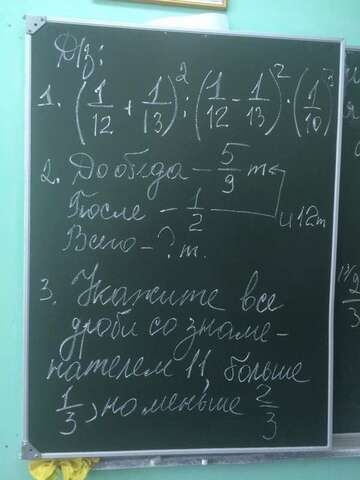 Д/з:
1. (1/12 + 1/13)² : (1/12 - 1/13)² · (1/10)³
2. До обеда - 5/9 т
После - 1/2 и 12т
Всего - ? т.
3. Укажите все
дроби со знаме-
нателем 11, больше
1/3, но меньше 2/3